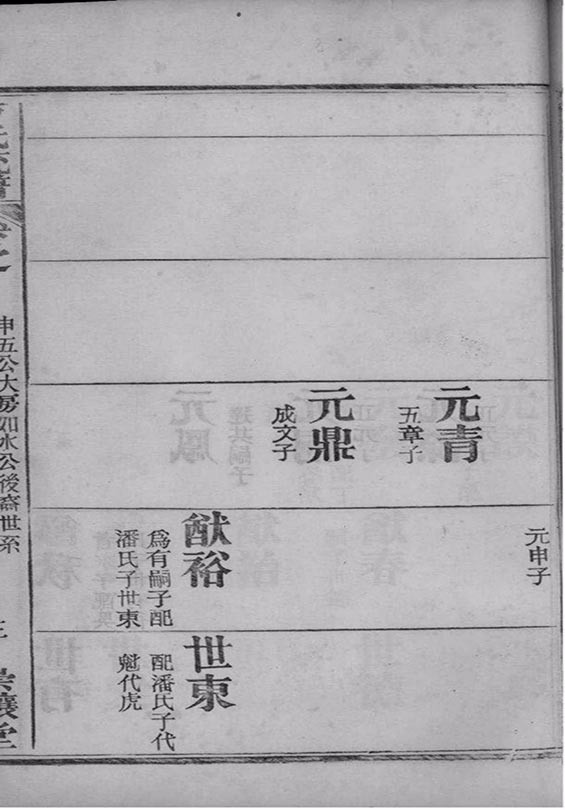 元申子
元青
五章子
元鼎
成文子
猷裕
為有嗣子配
潘氏子世東
世東
配潘氏子代
魁代虎
申五公大房如水公後裔世系